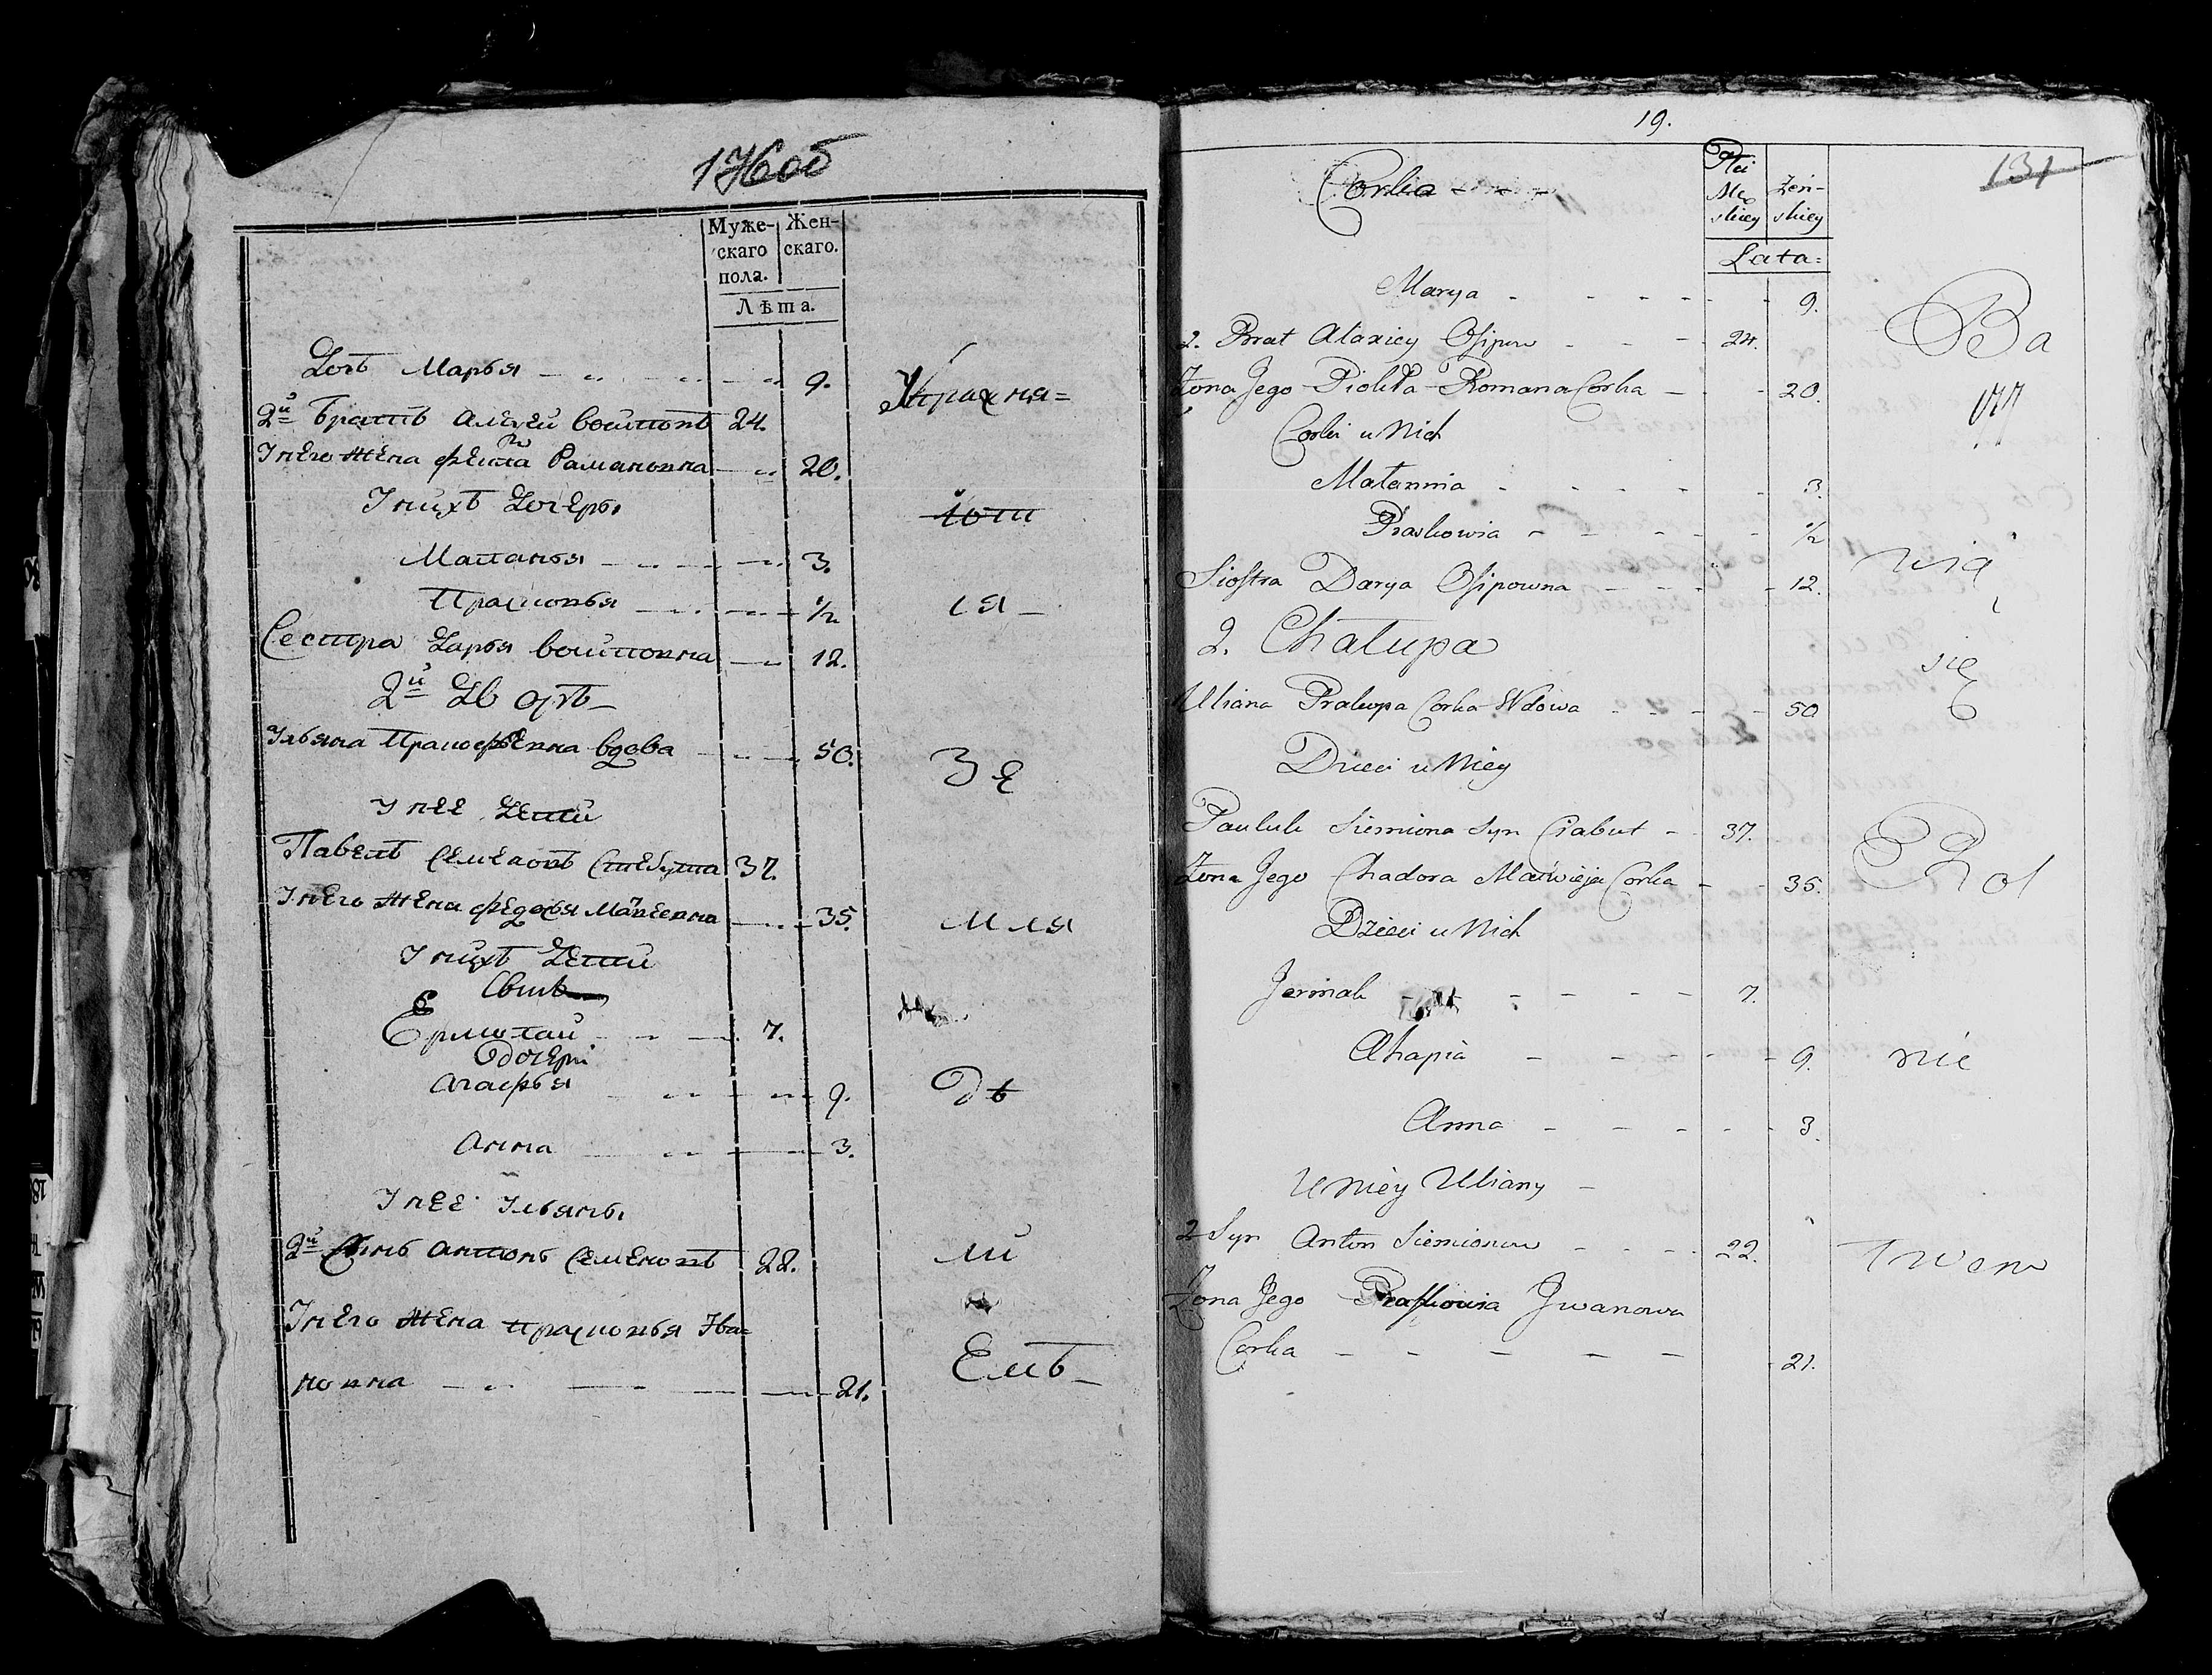 Муже-
скаго
пола.
Жен-
скаго.
Лѣта.
Дочь Марья 9.
2й Братъ Алексей 24.
У него жена Фекла Рамановна 20.
У нихъ дочери
Маланья 3.
Прасковья 1/2
Сестра Дарья 12.
2й Дворъ
Ульяна вдова 50.
У нее дети
Павелъ Семеновъ 37.
У него жена Федосья 35.
У нихъ дети
Сынъ
Ермолай 7.
дочери
Агафья 9.
Анна 3.
У нее Ульяны
2й Сынъ Антонъ Семеновъ 22.
У него жена Прасковья Ива=
новна 21.
Упражня=
ют
ся
Зе
мля
де
ли
Емъ
19.
131
Corka
Płci
Mę
skiey
Żeń-
skiey
Lata
Marya 9.
2. Brat Alaxiey Osipow 24.
Żona Jego Romana Corka 20.
Corki u Nich
Małannia 3.
Praskowia 1/2
Siostra Darya Osipowna 12.
2. Chałupa
Uliana Prakopa Corka Wdowa 50
Dzieci u Niey
Pauluk Siemiona Syn Ciabut 37.
Żona Jego Chadora Maćwieja Corka 35.
Dzieci u Nich
Jermak 7.
Ahapia 9.
Anna 3.
U Niey Uliany
2 Syn Anton Siemionow 22.
Żona Jego Praskowia Jwanowa
Corka 21.
Ba
wią
się
Rol
nic
twem